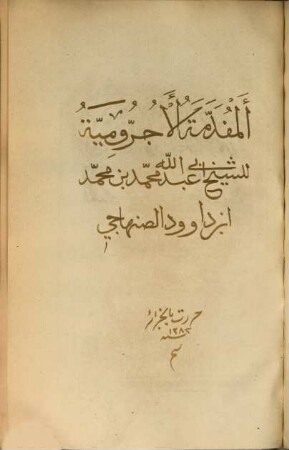 أَلْمُقَدَّمَةُ الأَجُرُّومِيَّةُ
للشيخ ابي عبد الله محمد بن محمد
ابن داوود الصنهاجي
حررت بالجزائر
سنة ١٢٨٢